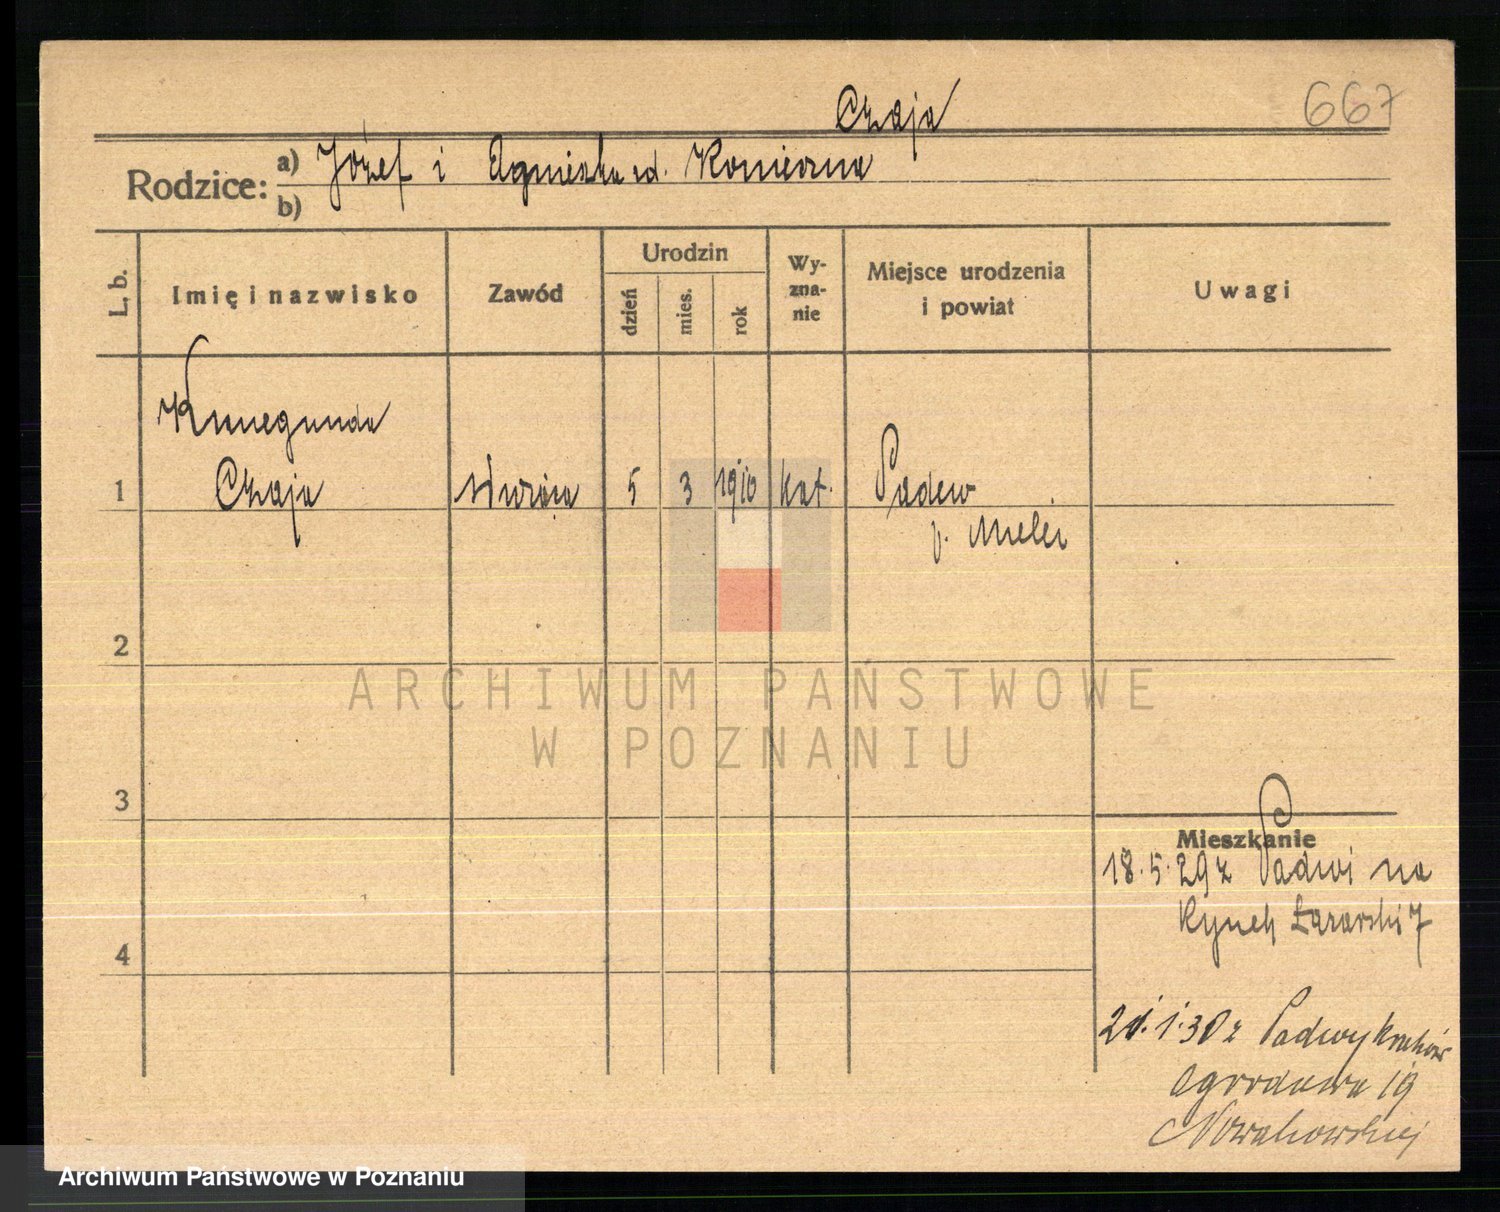 Czaja
667
Rodzice: a) Józef i Agnieszka ud. Konieczna
b)
L. b.
Imię i nazwisko
Zawód
Urodzin
dzień
mies.
rok
Wy-
zna-
nie
Miejsce urodzenia
i powiat
Uwagi
Kunegunda
1 Czaja 5 3 1910 kat. Padew
p. Mielec
2
ARCHIWUM PAŃSTWOWE
W POZNANIU
3
Mieszkanie
18.5.29 z Padwi na
Rynek Łazarski 7
4
21.1.30 z Padwy Kraków
Ogrodowa 19
Nowakowskiej
Archiwum Państwowe w Poznaniu